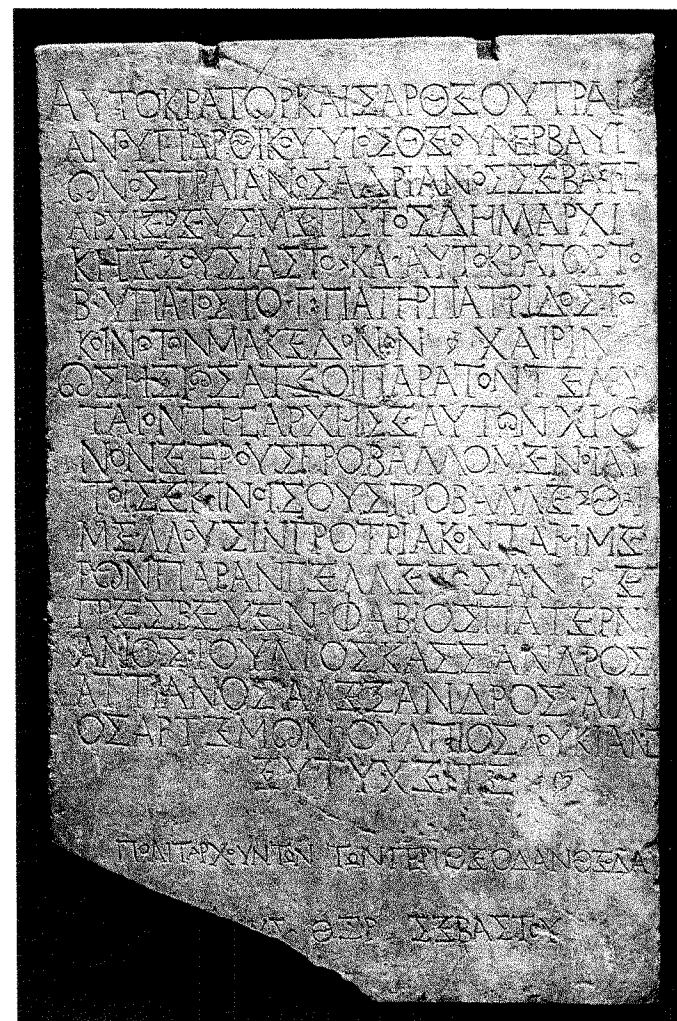 ΑΥΤΟΚΡΑΤΩΡΚΑΙΣΑΡΘΕΟΥΤΡΑΙ
ΑΝΟΥΠΑΡΘΙΚΟΥΥΙΟΣΘΕΟΥΝΕΡΒΑΥΙ
ΩΝΟΣΤΡΑΙΑΝΟΣΑΔΡΙΑΝΟΣΣΕΒΑΣΤΟΣ
ΑΡΧΙΕΡΕΥΣΜΕΓΙΣΤΟΣΔΗΜΑΡΧΙ
ΚΗΣΕΞΟΥΣΙΑΣΤΟΚΑΑΥΤΟΚΡΑΤΩΡΤΟ
ΒΥΠΑΤΟΣΤΟΓΠΑΤΗΡΠΑΤΡΙΔΟΣΤΩ
ΚΟΙΝΩΤΩΝΜΑΚΕΔΟΝΩΝ ΧΑΙΡΙΝ
ΩΣΗΞΙΩΣΑΤΕΟΙΠΑΡΑΤΟΝΤΕΛΕΥ
ΤΑΙΟΝΤΗΣΑΡΧΗΣΕΑΥΤΩΝΧΡΟ
ΝΟΝΕΤΕΡΟΥΣΠΡΟΒΑΛΛΟΜΕΝΟΙΑΥ
ΤΟΙΣΕΚΙΝΟΙΣΟΥΣΠΡΟΒΑΛΛΕΣΘΑΙ
ΜΕΛΛΟΥΣΙΝΠΡΟΤΡΙΑΚΟΝΤΑΗΜΕ
ΡΩΝΠΑΡΑΝΓΕΛΛΕΤΩΣΑΝ Ε
ΠΡΕΣΒΕΥΕΝΦΑΒΙΟΣΠΑΤΕΡΝΙ
ΑΝΟΣΙΟΥΛΙΟΣΚΑΣΣΑΝΔΡΟΣ
ΑΤΤΙΑΝΟΣΑΛΕΞΑΝΔΡΟΣΑΙΛΙ
ΟΣΑΡΤΕΜΩΝΙΟΥΛΠΙΟΣΛΟΥΚΙΑΝΟΣ
ΕΥΤΥΧΕΙΤΕ
ΠΟΛΙΤΑΡΧΟΥΝΤΩΝ ΤΩΝΠΕΡΙΘΕΟΔΑΝΘΕΔΑ
ΣΕΒΑΣΤΟΥ